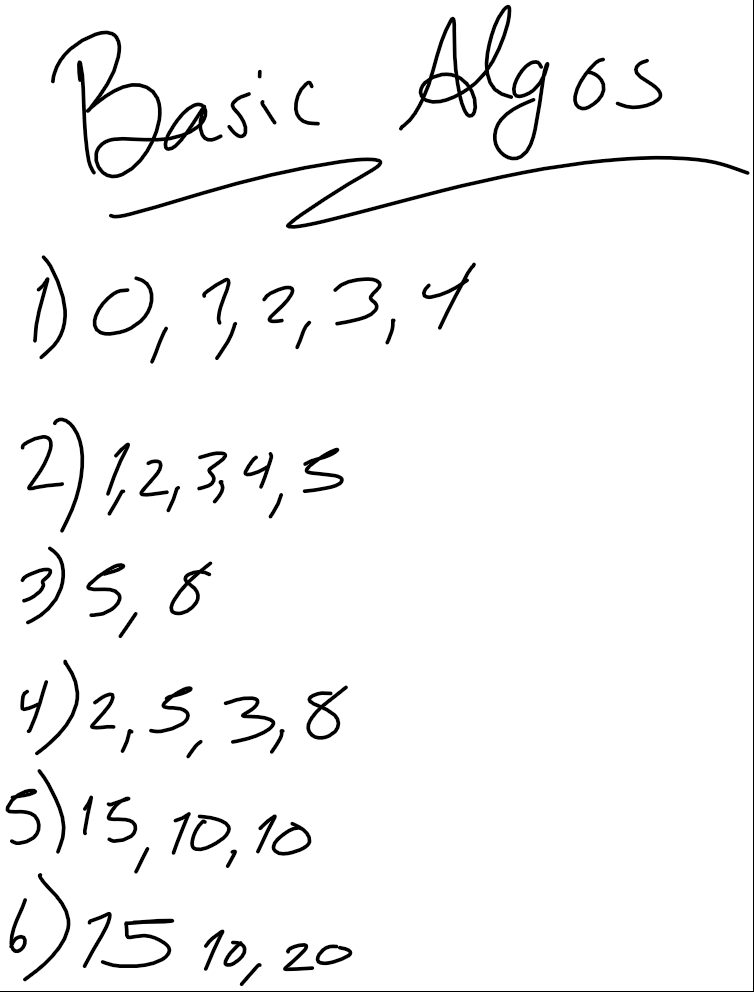 Basic Algos
1) 0, 1, 2, 3, 4
2) 1, 2, 3, 4, 5
3) 5, 8
4) 2, 5, 3, 8
5) 15, 10, 10
6) 15 10, 20